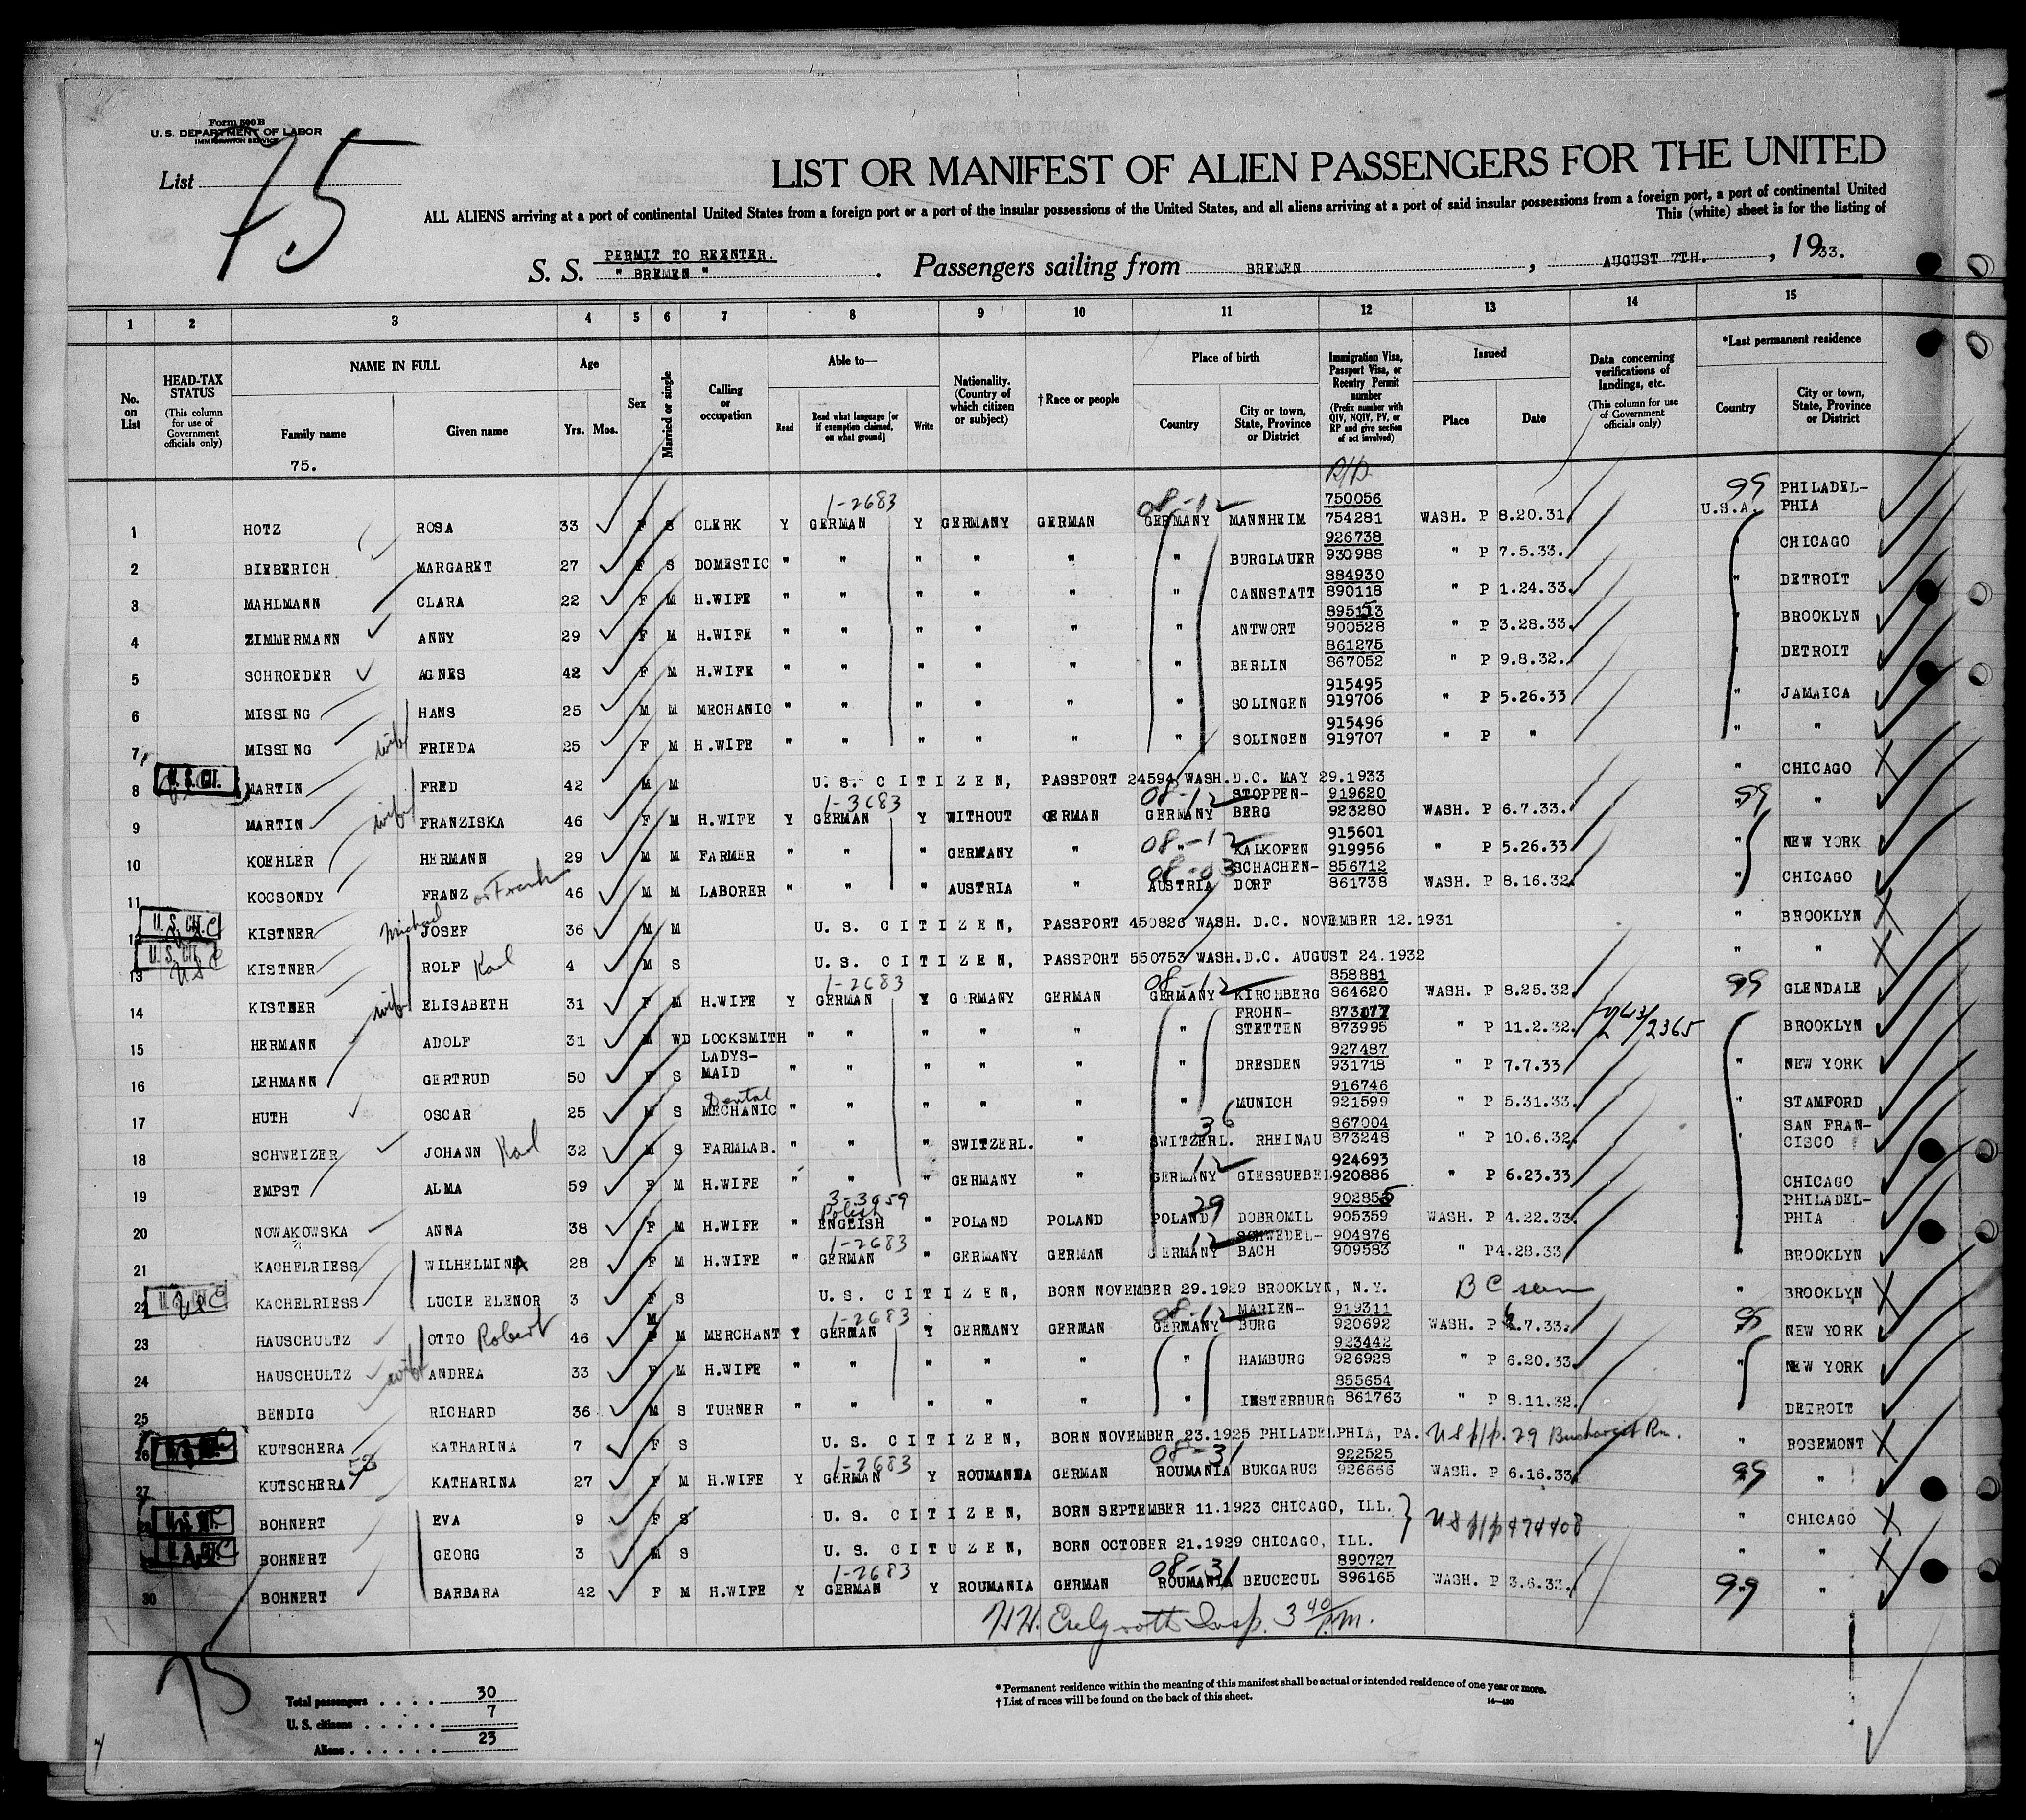 Form 500 B
U. S. DEPARTMENT OF LABOR
IMMIGRATION SERVICE
List 75
LIST OR MANIFEST OF ALIEN PASSENGERS FOR THE UNITED
ALL ALIENS arriving at a port of continental United States from a foreign port or a port of the insular possessions of the United States, and all aliens arriving at a port of said insular possessions from a foreign port, a port of continental United
This (white) sheet is for the listing of
PERMIT TO REENTER.
S. S. " BREMEN " . Passengers sailing from BREMEN , AUGUST 7TH. , 1933.
1 2 3 4 5 6 7 8 9 10 11 12 13 14 15
No. on List
HEAD-TAX STATUS (This column for use of Government officials only)
NAME IN FULL Family name Given name
Age Yrs. Mos.
Sex
Married or single
Calling or occupation
Able to— Read Read what language [or if exemption claimed, on what ground] Write
Nationality. (Country of which citizen or subject)
†Race or people
Place of birth Country City or town, State, Province or District
Immigration Visa, Passport Visa, or Reentry Permit number (Prefix number with QIV, NQIV, PV, or RP and give section of act involved)
Issued Place Date
Data concerning verifications of landings, etc. (This column for use of Government officials only)
*Last permanent residence Country City or town, State, Province or District
75.
1 HOTZ ROSA 33 F S CLERK Y 1-2683 GERMAN Y GERMANY GERMAN 08-12 GERMANY MANNHEIM 750056 754281 WASH. P 8.20.31. 99 U.S.A. PHILADEL- PHIA
2 BIEBERICH MARGARET 27 F S DOMESTIC " " " " " " BURGLAUER 926738 930988 " P 7.5.33. " CHICAGO
3 MAHLMANN CLARA 22 F M H.WIFE " " " " " " CANNSTATT 884930 890118 " P 1.24.33. " DETROIT
4 ZIMMERMANN ANNY 29 F M H.WIFE " " " " " " ANTWORT 895113 900528 " P 3.28.33. " BROOKLYN
5 SCHROEDER AGNES 42 F M H.WIFE " " " " " " BERLIN 861275 867052 " P 9.8.32. " DETROIT
6 MISSING HANS 25 M M MECHANIC " " " " " " SOLINGEN 915495 919706 " P 5.26.33 " JAMAICA
7 MISSING wife FRIEDA 25 F M H.WIFE " " " " " " SOLINGEN 915496 919707 " P " " "
8 U.S. CIT. MARTIN FRED 42 M M U. S. C I T I Z E N, PASSPORT 24594 WASH.D.C. MAY 29.1933 " CHICAGO
9 MARTIN wife FRANZISKA 46 F M H.WIFE Y 1-3683 GERMAN Y WITHOUT GERMAN 08-12 GERMANY STOPPEN- BERG 919620 923280 WASH. P 6.7.33. 99 "
10 KOEHLER HERMANN 29 M M FARMER " " " GERMANY " 08-12 " KALKOFEN 915601 919956 " P 5.26.33 " NEW YORK
11 KOCSONDY FRANZ or Frank 46 M M LABORER " " " AUSTRIA " 08-03 AUSTRIA SCHACHEN- DORF 856712 861738 WASH. P 8.16.32. " CHICAGO
12 U.S. CIT. USC KISTNER Michael JOSEF 36 M M U. S. C I T I Z E N, PASSPORT 450826 WASH. D.C. NOVEMBER 12.1931 " BROOKLYN
13 U.S. CIT. USC KISTNER ROLF Karl 4 M S U. S. C I T I Z E N, PASSPORT 550753 WASH.D.C. AUGUST 24.1932 " "
14 KISTNER wife ELISABETH 31 F M H.WIFE Y 1-2683 GERMAN Y GERMANY GERMAN 08-12 GERMANY KIRCHBERG 858881 864620 WASH. P 8.25.32. 99 GLENDALE
15 HERMANN ADOLF 31 M WD LOCKSMITH " " " " " " FROHN- STETTEN 873077 873995 " P 11.2.32. BROOKLYN
16 LEHMANN GERTRUD 50 F S LADYS- MAID " " " " " " DRESDEN 927487 931718 " P 7.7.33 " NEW YORK
17 HUTH OSCAR 25 M S Dental MECHANIC " " " " " " MUNICH 916746 921599 " P 5.31.33. " STAMFORD
18 SCHWEIZER JOHANN Karl 32 M S FARMLAB. " " " SWITZERL. " 36 SWITZERL. RHEINAU 867004 873248 " P 10.6.32. " SAN FRAN- CISCO
19 EMPST ALMA 59 F M H.WIFE " " " GERMANY " 12 GERMANY GIESSUEBEL 924693 920886 " P 6.23.33 CHICAGO
20 NOWAKOWSKA ANNA 38 F M H.WIFE " 3-3659 Polish ENGLISH " POLAND POLAND 29 POLAND DOBROMIL 902855 905359 WASH. P 4.22.33. PHILADEL- PHIA
21 KACHELRIESS WILHELMINA 28 F M H.WIFE " 1-2683 GERMAN " GERMANY GERMAN 12 GERMANY SCHWEDEL- BACH 904876 909583 " P4.28.33 " BROOKLYN
22 U.S. CIT. USC KACHELRIESS LUCIE ELENOR 3 F S U. S. C I T I Z E N, BORN NOVEMBER 29.1929 BROOKLYN, N.Y. B C seen " BROOKLYN
23 HAUSCHULTZ OTTO Robert 46 M M MERCHANT Y 1-2683 GERMAN Y GERMANY GERMAN 08-12 GERMANY MARIEN- BURG 919311 920692 WASH. P 6.7.33. 99 NEW YORK
24 HAUSCHULTZ wife ANDREA 33 F M H.WIFE " " " " " " HAMBURG 923442 926928 " P 6.20.33. " NEW YORK
25 BENDIG RICHARD 36 M S TURNER " " " " " " INSTERBURG 855654 861763 " P 8.11.32. DETROIT
26 KUTSCHERA KATHARINA 7 F S U. S. C I T I Z E N, BORN NOVEMBER 23.1925 PHILADELPHIA, PA. US p/p. 29 Bucharest Rm. " ROSEMONT
27 KUTSCHERA 58 KATHARINA 27 F M H.WIFE Y 1-2683 GERMAN Y ROUMANIA GERMAN 08-31 ROUMANIA BUKGARUS 922525 926666 WASH. P 6.16.33. 99 "
U.S. CIT. BOHNERT EVA 9 F S U. S. C I T I Z E N, BORN SEPTEMBER 11.1923 CHICAGO, ILL. US p/p 474408 " CHICAGO
BOHNERT GEORG 3 M S U. S. C I T U Z E N, BORN OCTOBER 21.1929 CHICAGO, ILL. " "
30 BOHNERT BARBARA 42 F M H.WIFE Y 1-2683 GERMAN Y ROUMANIA GERMAN 08-31 ROUMANIA BEUCECUL 890727 896165 WASH. P 3.6.33. 99 "
Insp. 3 40 P.M.
75
Total passengers . . . . 30
U. S. citizens . . . . . 7
Aliens . . . . . . 23
* Permanent residence within the meaning of this manifest shall be actual or intended residence of one year or more.
† List of races will be found on the back of this sheet.
14—430